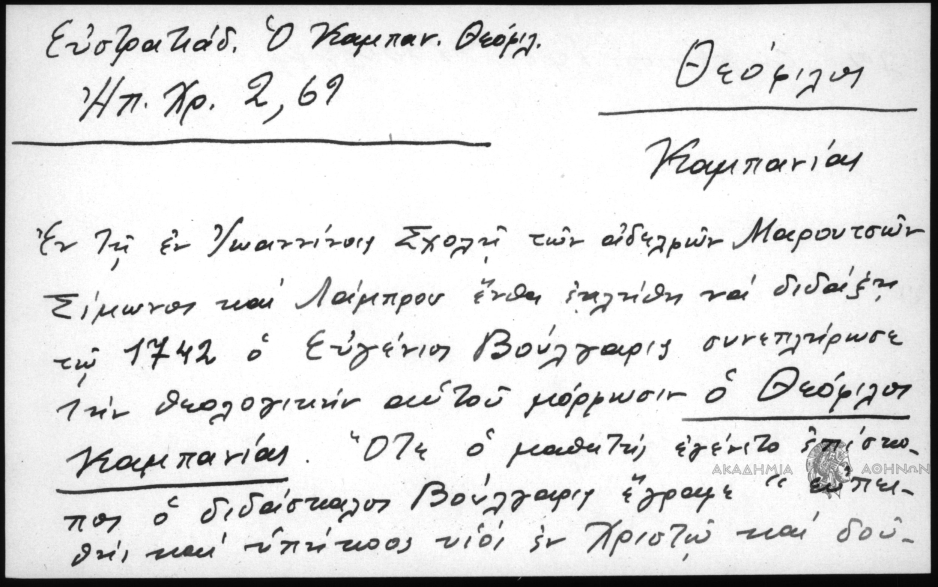 Εὐστρατιάδ. Ὁ Καμπαν. Θεόφιλ.
Ἠπ. Χρ. 2, 69
Θεόφιλος
Καμπανίας
Ἐν τῇ ἐν Ἰωαννίνοις Σχολῇ τῶν ἀδελφῶν Μαρουτσῶν
Σίμωνος καί Λάμπρου ἔνθα ἐκλήθη νά διδάξῃ
τῷ 1742 ὁ Εὐγένιος Βούλγαρις συνεπλήρωσε
τήν θεολογικήν αὐτοῦ μόρφωσιν ὁ Θεόφιλος
Καμπανίας. Ὅτε ὁ μαθητής ἐγένετο ἐπίσκο-
πος ὁ διδάσκαλος Βούλγαρις ἔγραφε "εὐπει-
θής καί ὑπήκοος υἱός ἐν Χριστῷ καί δοῦ-
ΑΚΑΔΗΜΙΑ ΑΘΗΝΩΝ